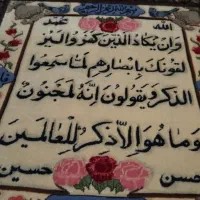 الله
وَاِن يَكَادُ الَّذينَ كَفَرُوا لَيُزْ
لِقُونَكَ بِاَبْصَارِهِم لَمَّا سَمِعُوا
الذِّكرَ وَيَقُولُونَ اِنَّهُ لَمَجْنُونٌ
وَمَا هُوَ اِلَّا ذِكْرٌ لِلْعَالَمينَ
حسن حسين